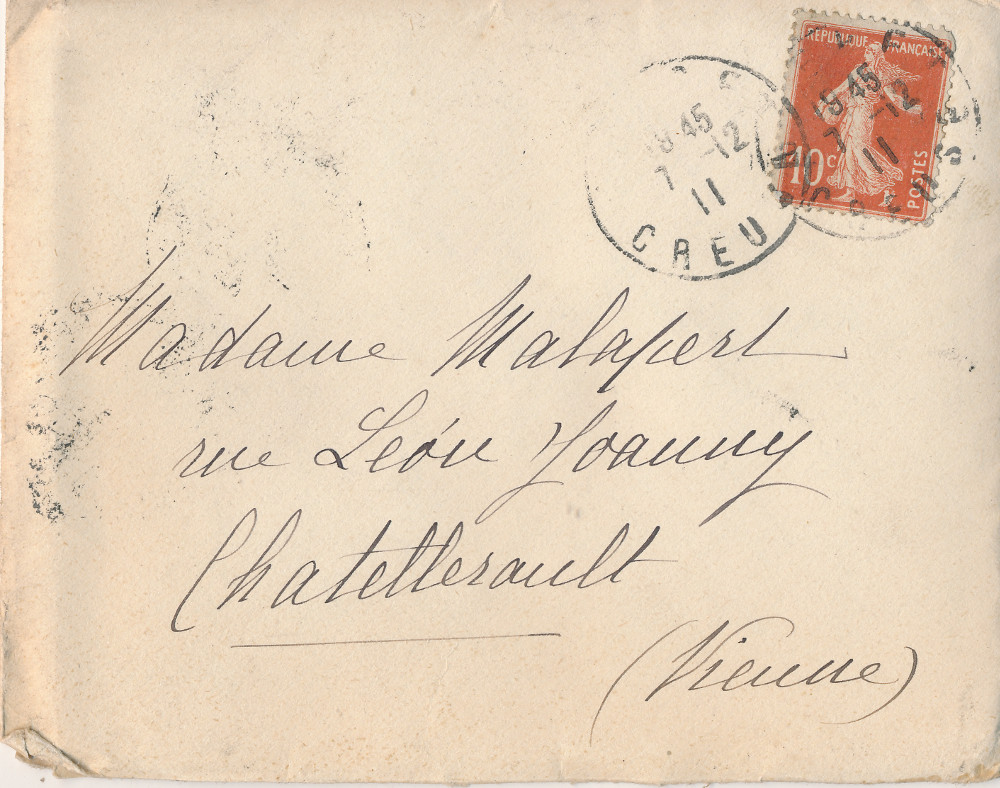 REPUBLIQUE FRANÇAISE
10 c
POSTES
18 45
7 -12
11
CREUSE
18 45
7 -12
11
CREU
Madame Malapert
rue León Joanny
Chatellerault
(Vienne)